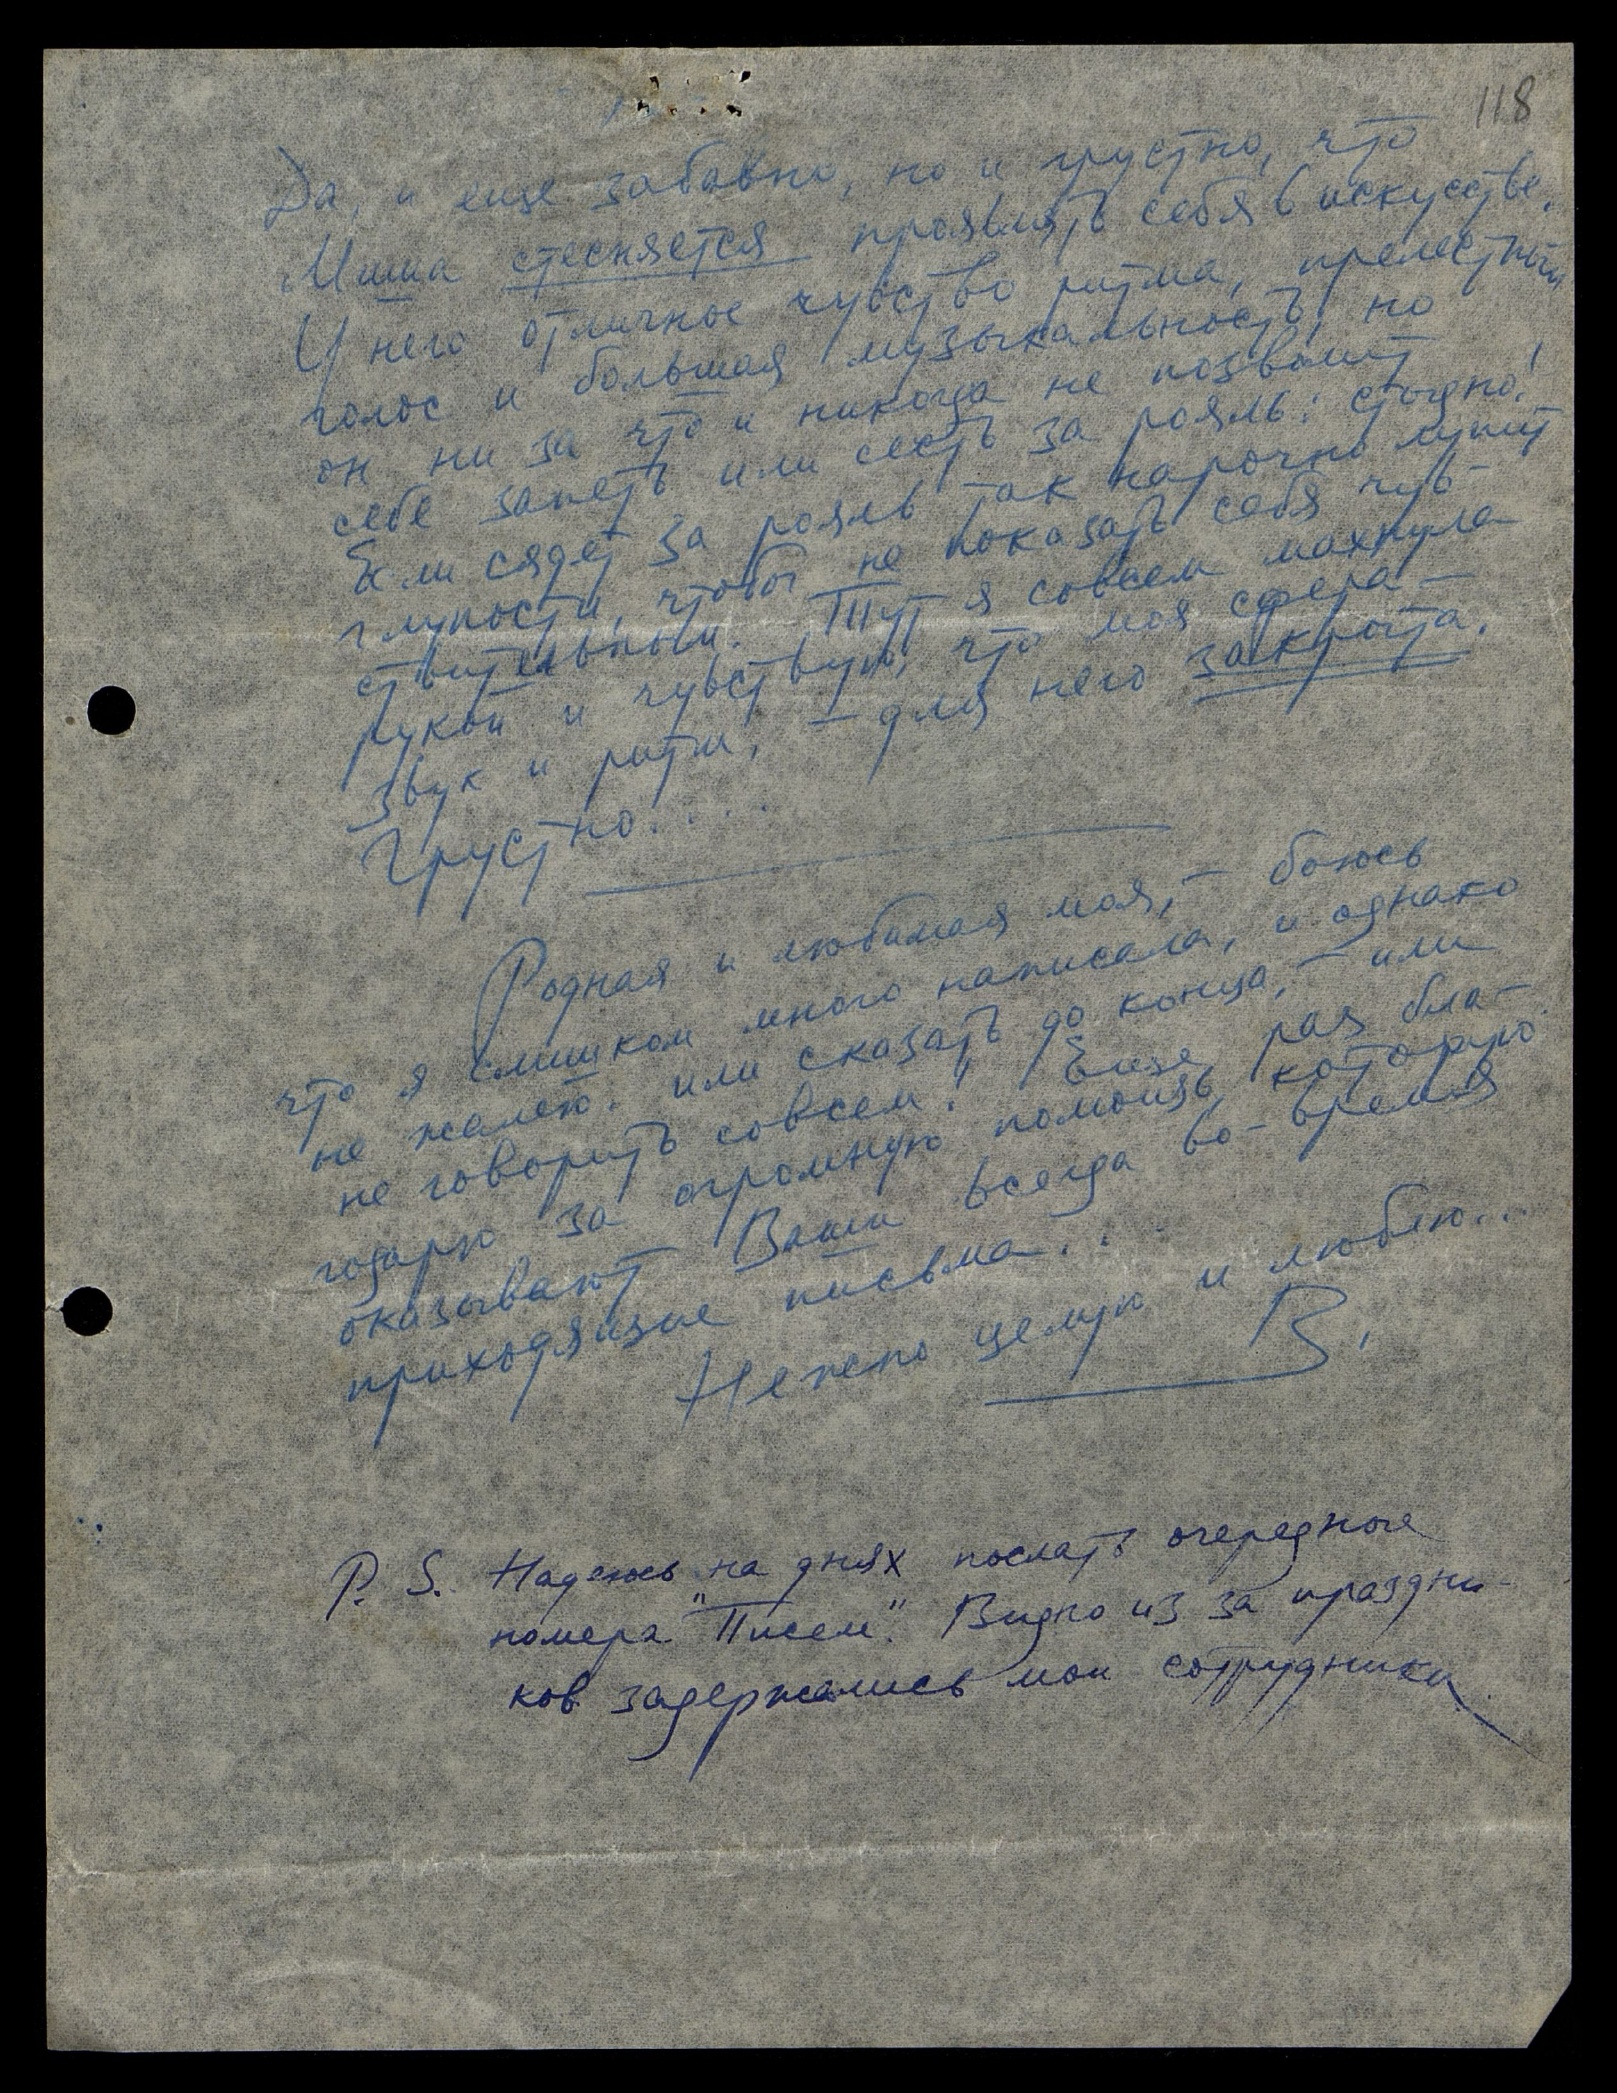 118
Да, и еще забавно, но и грустно, что
Миша стесняется проявлять себя в искусстве.
У него отличное чувство ритма, прелестный
голос и большая музыкальность, но
он ни за что и никогда не позволит
себе запеть или сесть за рояль: стыдно!
Если сядет за рояль так нарочно лупит
глупости, чтобы не показать себя чув-
ствительным. Тут я совсем махнула
рукой и чувствую, что моя сфера —
звук и ритм, — для него закрыта.
Грустно....
Родная и любимая моя, — боюсь
что я слишком много написала, и однако
не жалею. или сказать до конца, — или
не говорить совсем! Еще раз бла-
годарю за огромную помощь, которую
оказывают Ваши всегда во-время
приходящие письма...
Нежно целую и люблю...
В.
P. S. Надеюсь на днях послать очередные
номера "Писем". Видно из за праздни-
ков задержались мои сотрудники